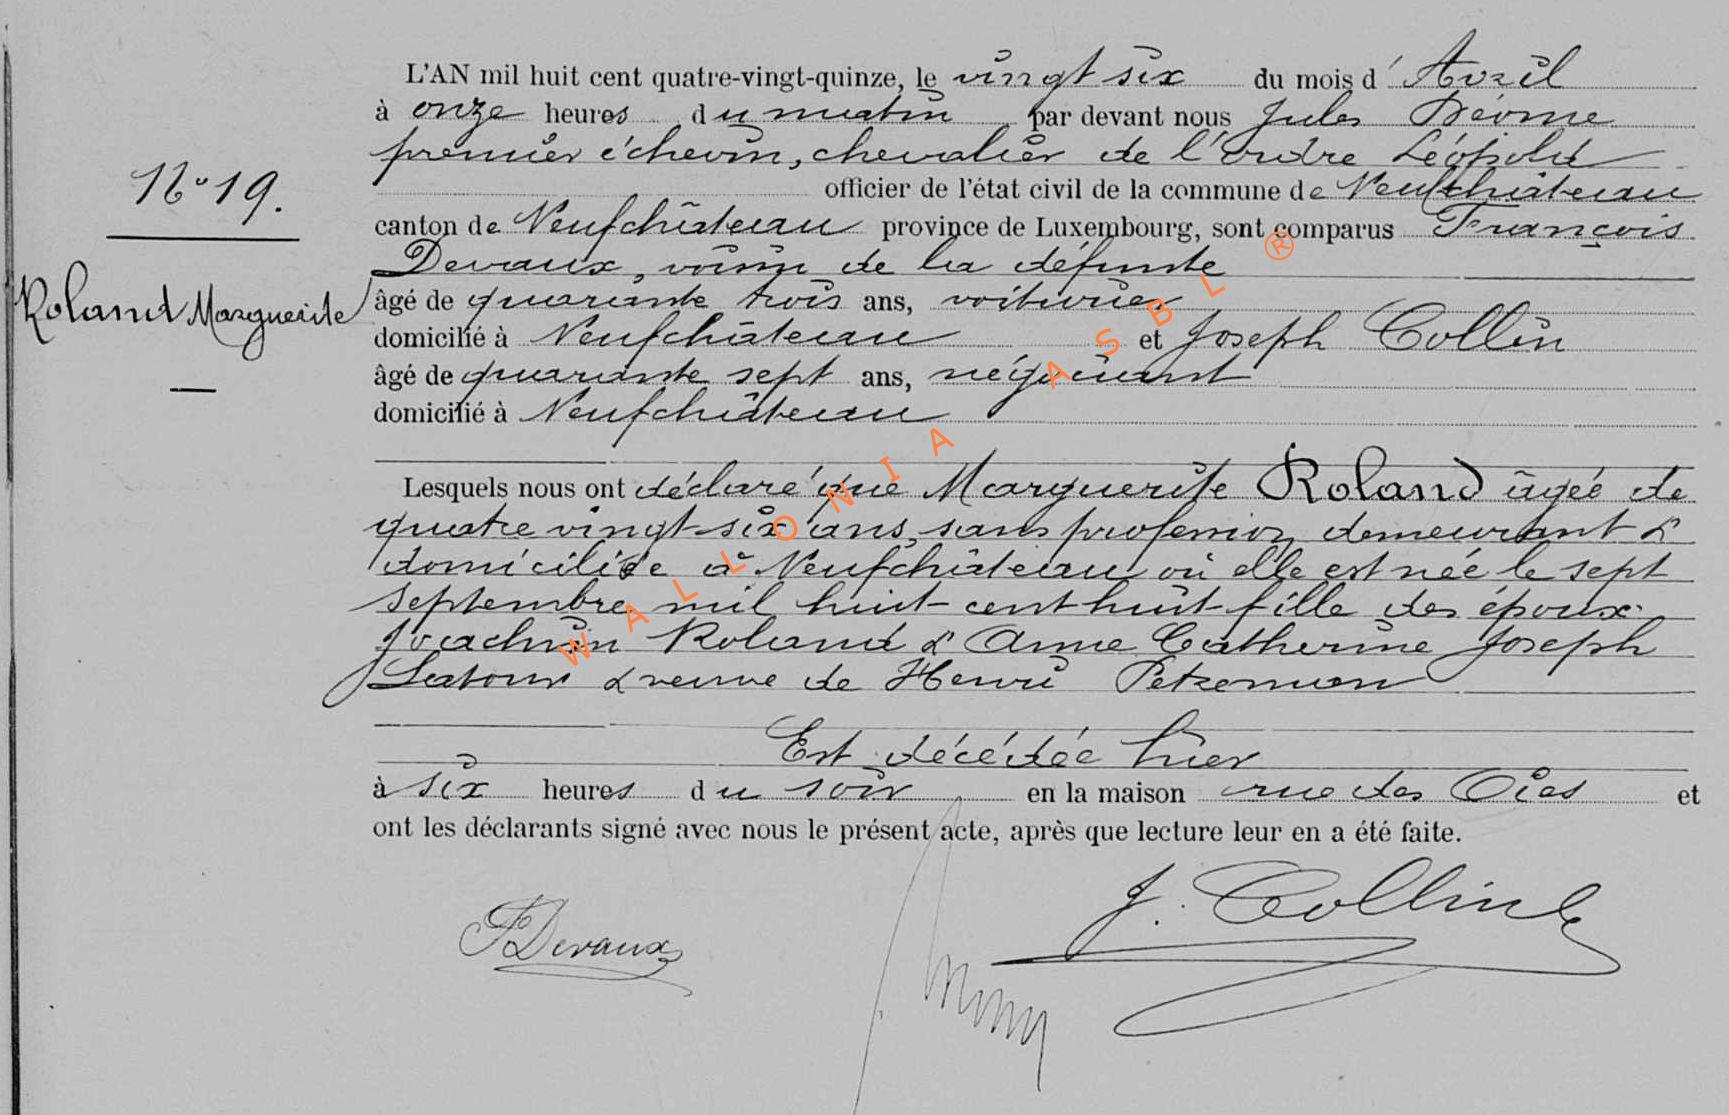 L'AN mil huit cent quatre-vingt-quinze, le vingt six du mois d'Avril
à onze heures du matin par devant nous Jules Déome
premier échevin, chevalier de l'ordre Léopold
N° 19.
officier de l'état civil de la commune de Neufchâteau
canton de Neufchâteau province de Luxembourg, sont comparus François
Devaux, voisin de la défunte
Roland Marguerite
âgé de quarante trois ans, voiturier
domicilié à Neufchâteau et Joseph Collin
âgé de quarante sept ans, négociant
domicilié à Neufchâteau
Lesquels nous ont déclaré que Marguerite Roland âgée de
quatre vingt-six ans, sans profession demeurant &
domiciliée à Neufchâteau où elle est née le sept
septembre mil huit cent huit fille des époux
Joachim Roland & Anne Catherine Joseph
Latour & veuve de Henri Petremen
Est décédée hier
à six heures du soir en la maison rue des Oies et
ont les déclarants signé avec nous le présent acte, après que lecture leur en a été faite.
J. Collin
F Devaux
WALLONIA ASBL ®